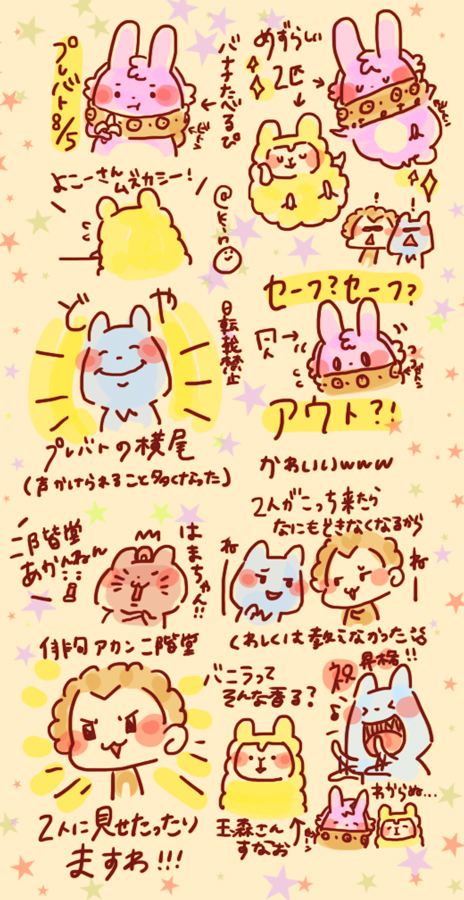 プレバト
8/5
バナナたべるぴ
めずらしい
2匹
よこーさん
ムズカシー！
ど や
自転輪禁止
セーフ？セーフ？
アウト？！
プレバトの横尾
(声かけられること多くなった)
かわいいwww
2人がこっち来たら
なにもできなくなるから
ねー
ねー
二階堂
あかんねん
はまちゃん!!
俳句アカン二階堂
くわしくは教えなかった
祝
昇格!!
バニラって
そんな香る？
2人に見せたったり
ますわ!!!
玉森さん
すなお
わからぬ…